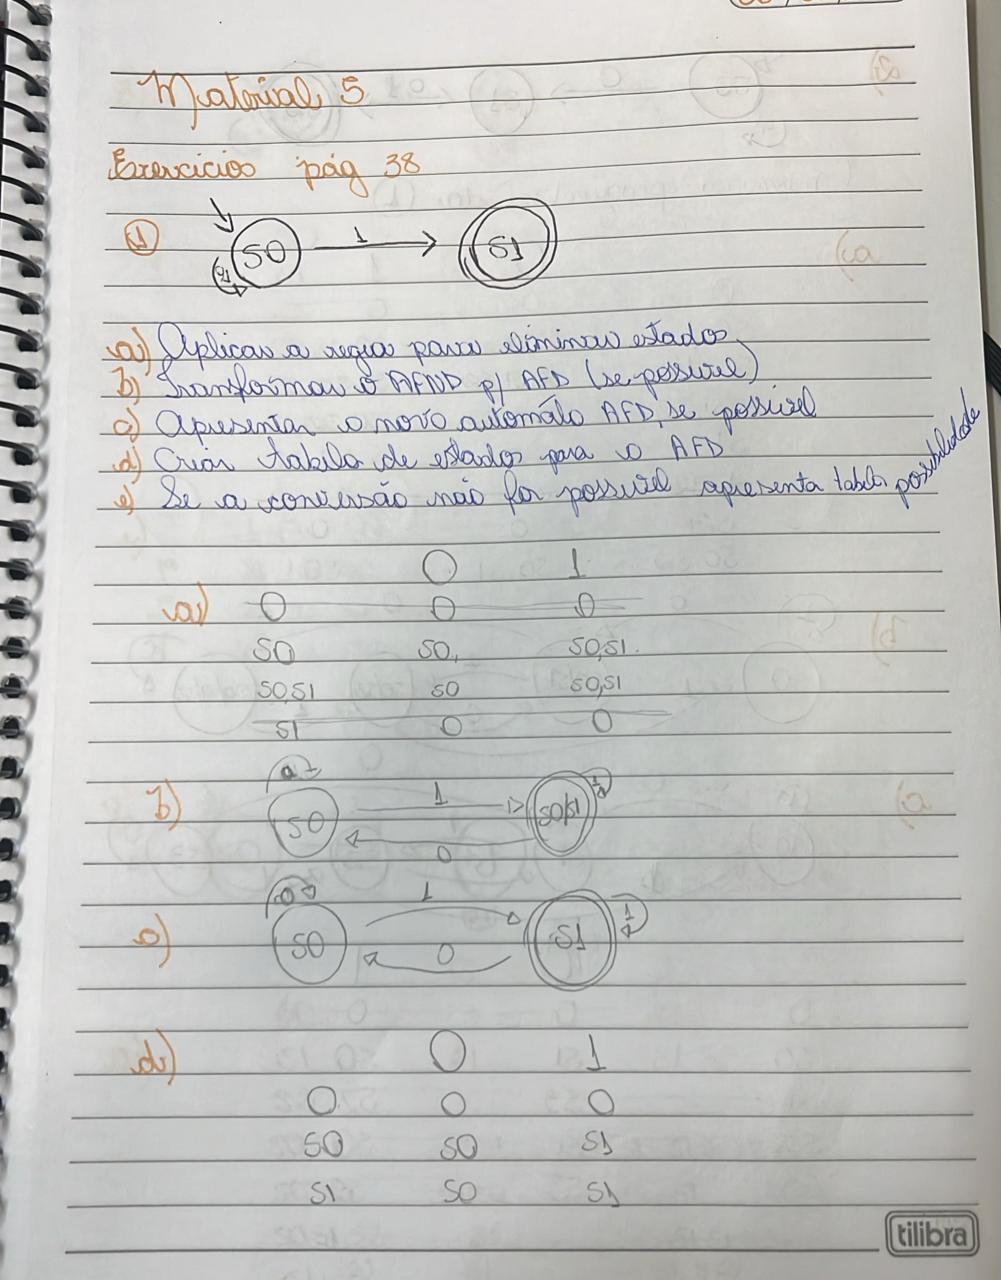 Material 5
Exercícios pág 38
1
S0 1 S1
0,1
a) Aplicar a regra para eliminar estados
b) Transformar o AFND p/ AFD (se possível)
c) Apresentar o novo automáto AFD, se possível
d) Criar tabela de estados para o AFD
e) Se a conversão não for possível apresenta tabela possibilidade
0 1
a) 0 0 0
S0 S0, S0,S1.
S0,S1 S0 S0,S1
S1 0 0
b) S0 1 S0,S1 1
0
0 1
c) S0 S1 1
0
d) 0 1
0 0 0
S0 S0 S1
S1 S0 S1
tilibra